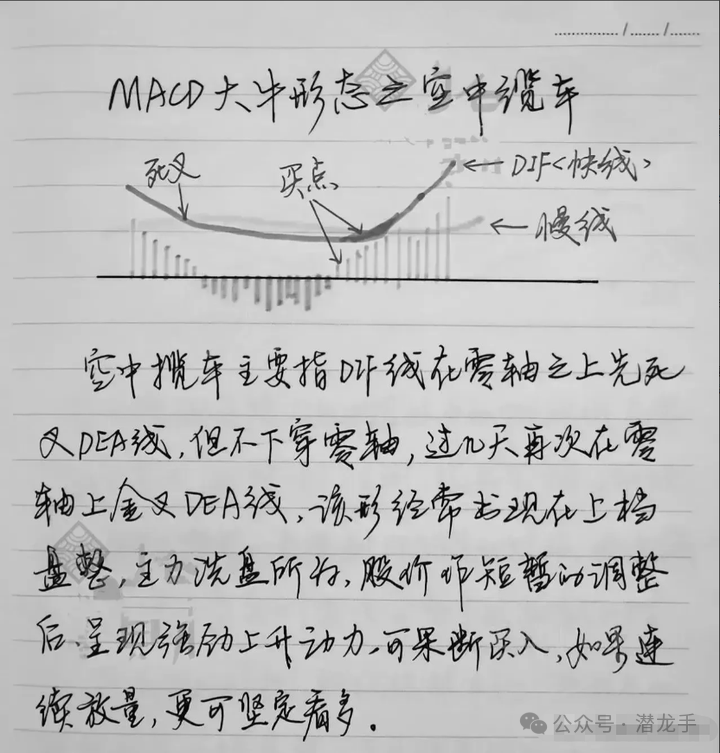 MACD大牛形态之空中缆车
死叉
买点
←DIF<快线>
←慢线
空中揽车主要指DIF线在零轴之上先死
叉DEA线，但不下穿零轴，过几天再次在零
轴上金叉DEA线，该形经常出现在上档
盘整，主力洗盘所为，股价作短暂的调整
后、呈现强劲上升动力，可果断买入，如果连
续放量，更可坚定看多。
公众号·潜龙手